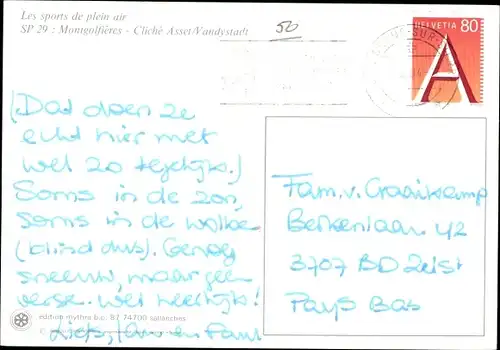 Les sports de plein air
SP 29 : Montgolfières - Cliché Asset/Vandystadt
50
HELVETIA 80
A
(Dat doen ze
echt hier met
wel 20 tegelijk.)
Soms in de zon,
soms in de wolken
(blind dus). Genoeg
sneeuw, maar geen
verse. Wel heerlijk!
Liefs,
Fam. v. Craaikamp
Berkenlaan 42
3707 BD Zeist
Pays Bas
edition mythra b.c. 87 74700 sallanches